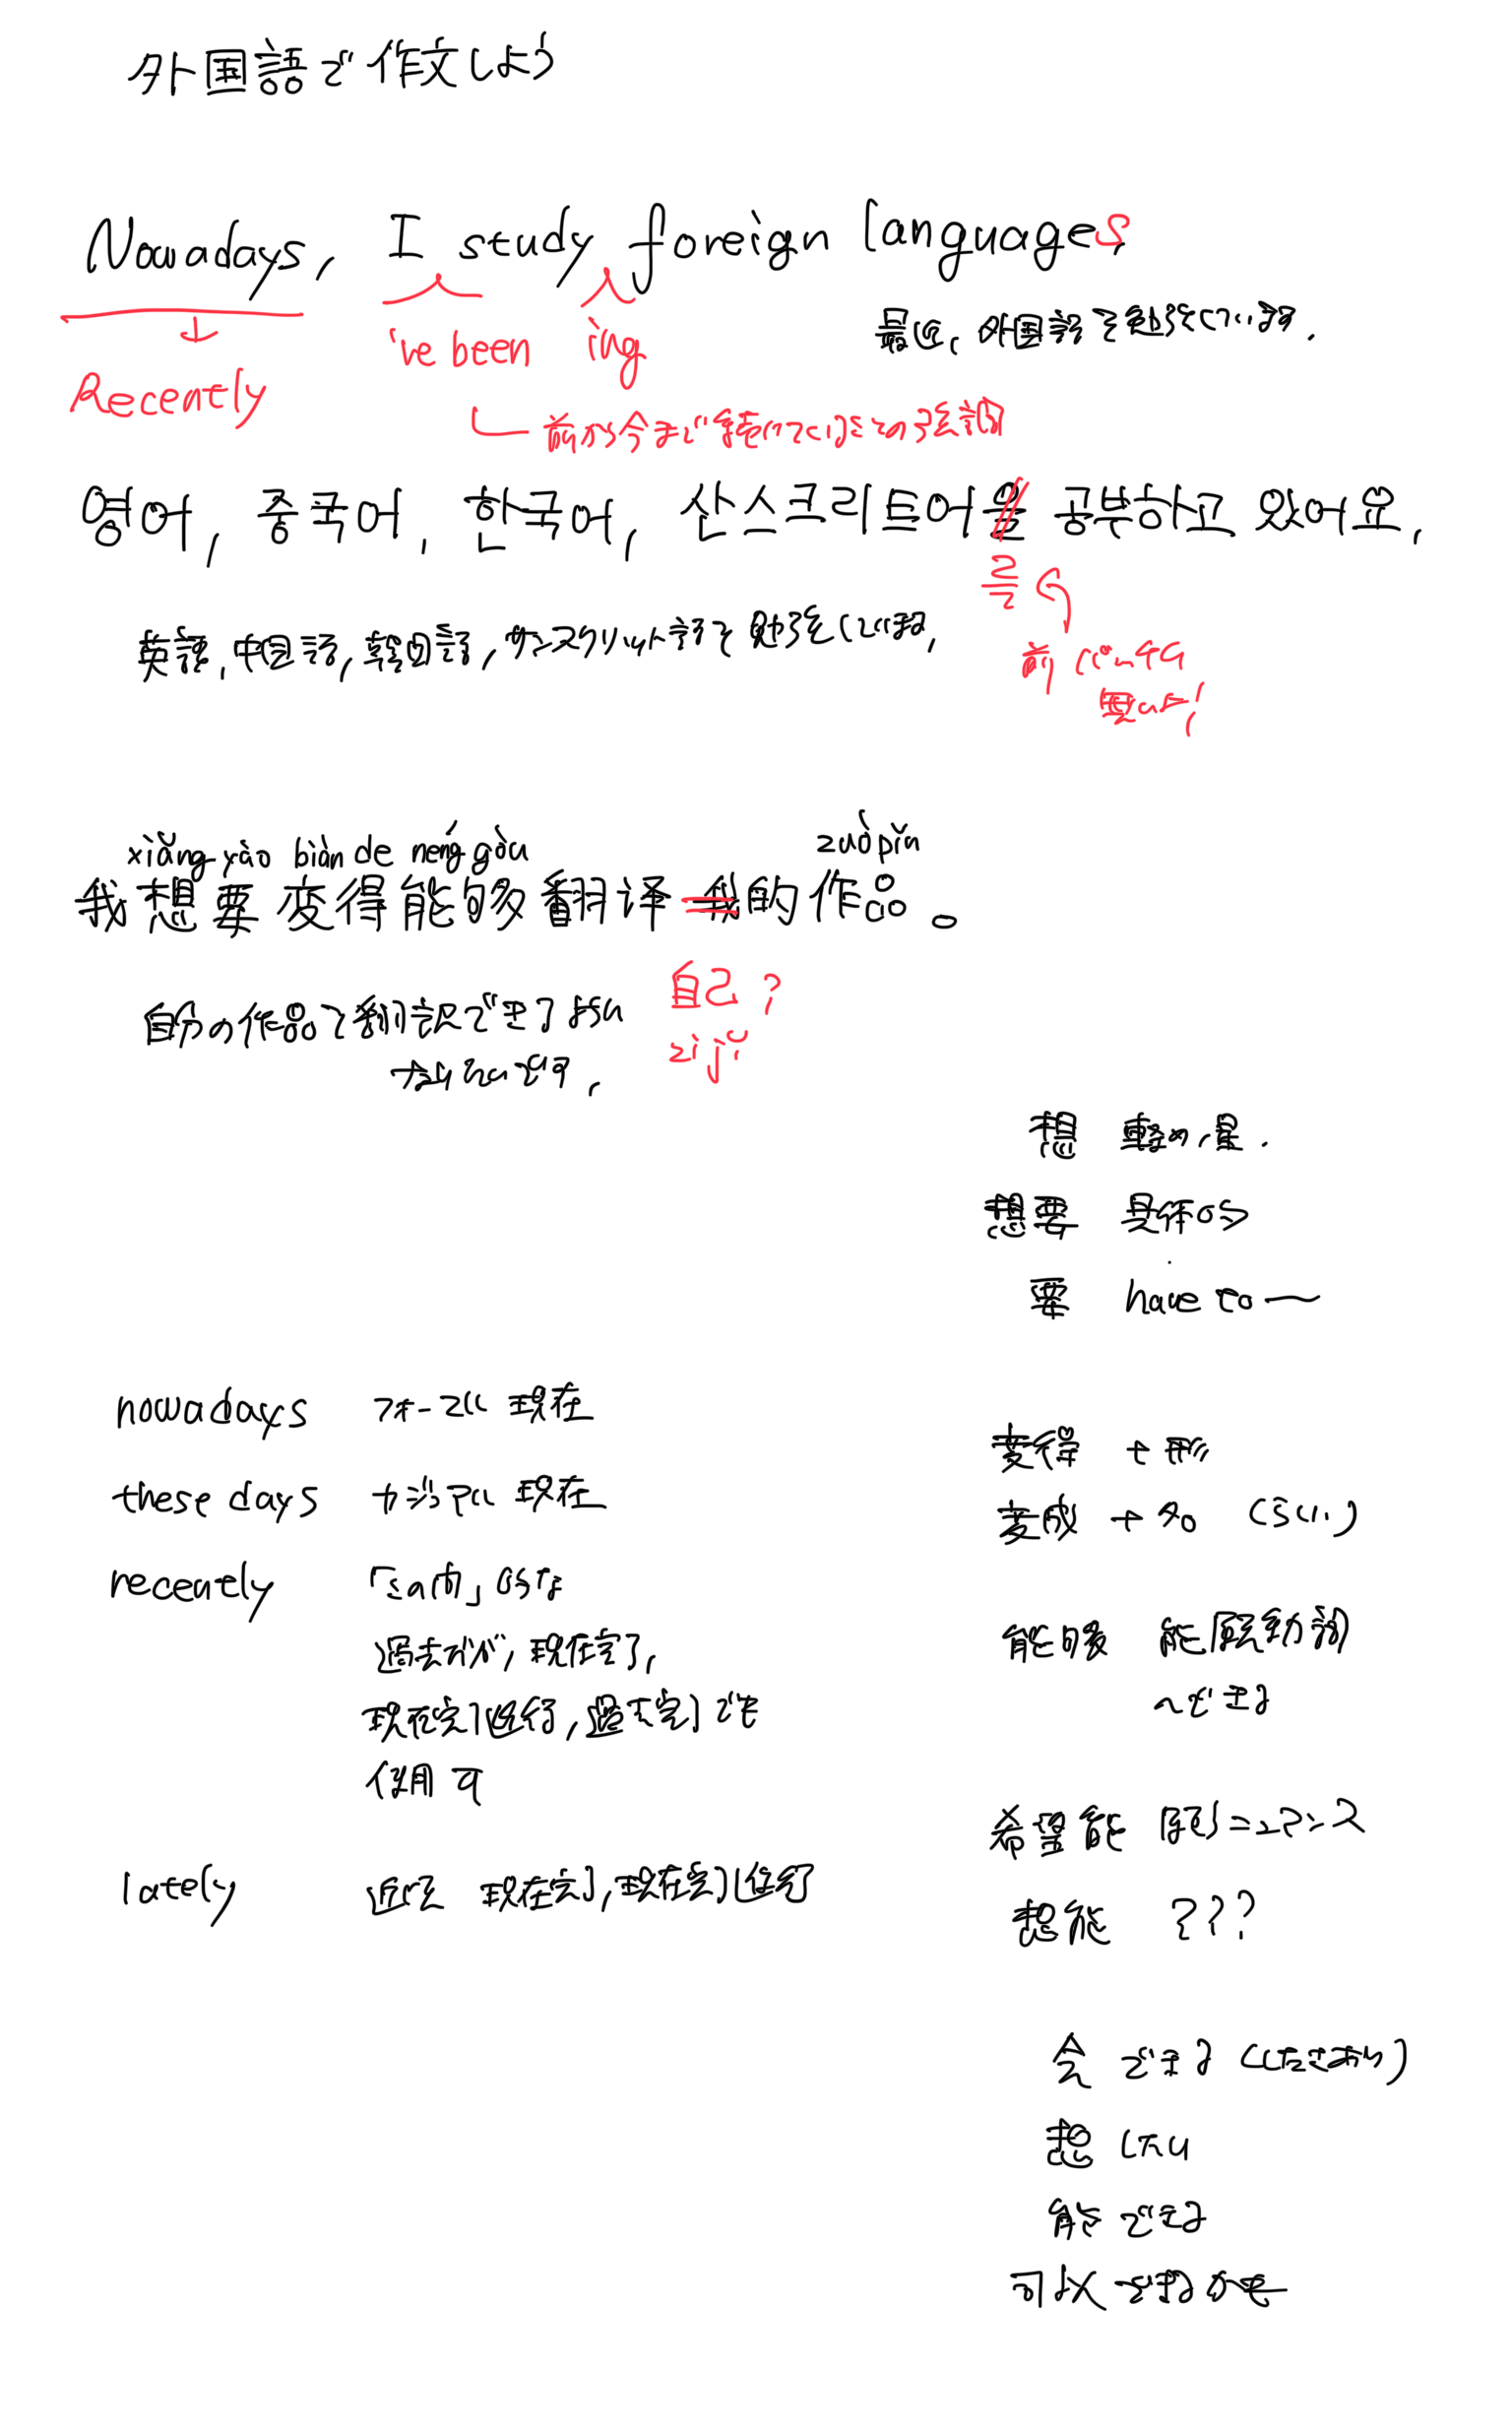 外国語で作文しよう
Nowadays, I study foreign languages.
Recently
've been ing
最近、外国語を勉強している.
前から今まで続けていることの強調
영어, 중국어, 한국어, 산스크리트어을 공부하고 있어요.
를
英語, 中国語, 韓国語, サンスクリット語を勉強している,
前にパッチム
無いから!
xiǎng yào biàn de néng gòu zuò pǐn
我想要变得能够翻译我的作品。
自己?
zì jǐ
自分の作品を翻訳できるように
なりたいです.
想 軽め、
想要 具体的
要 have to~
nowadays フォーマル 現在
these days カジュアル 現在
recently 「この前」的な
過去形, 現在完了,
現在完了進行, 過去完了でも
使用可
lately 最近 現在完了, 現在完了進行
変得 +形
変成 +名 (らしい)
能够 能願動詞
~できる
希望能 願うニュアンス
想能 ???
会 できる
想 したい
能 できる
可以 できるかも